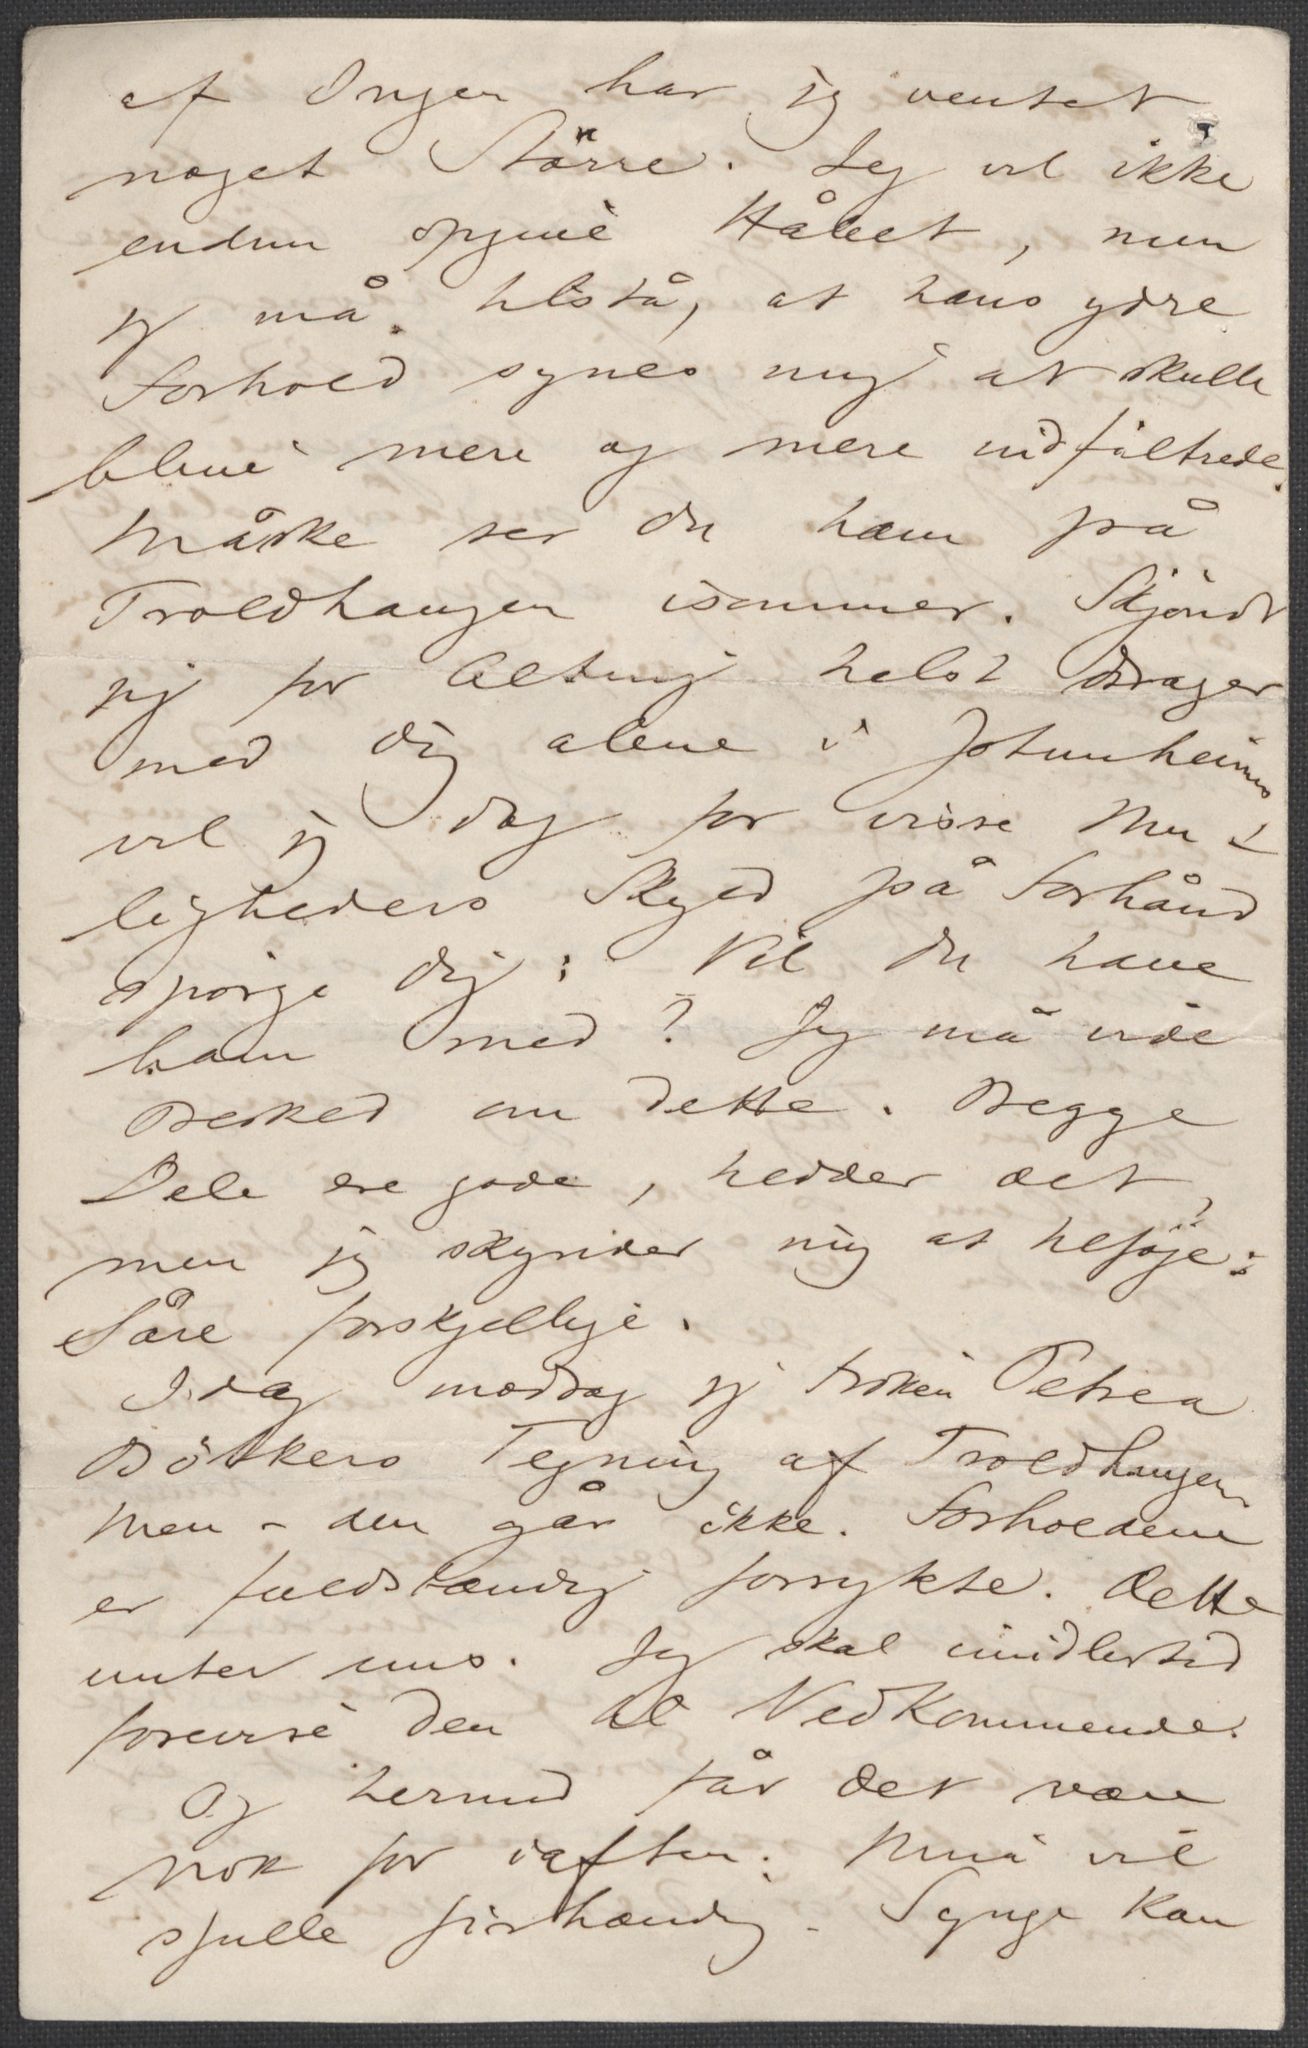 af Ingen har jeg ventet
noget Större. Jeg vil ikke
endnu opgive Håbet, men
jeg må tilstå, at hans ydre
Forhold synes mig at skulle
blive mere og mere indfiltrede.
Måske ser du ham på
Troldhaugen isommer. Skjöndt
jeg for Alting helst drager
med dig alene i Jotunheimen
vil jeg dog for visse Mu-
ligheders Skyld på Forhånd
spörge dig: Vil du have
ham med? Jeg må vide
Besked om dette. Begge
Dele ere gode, hedder det,
men jeg skynder mig at tilföje:
Såre forskjellige.
Idag modtog jeg Fröken Petrea
Bötkers Tegning af Troldhaugen,
Men – den går ikke. Forholdene
er fuldstændig forrykte. Dette
unter uns. Jeg skal imidlertid
forevise den til Vedkommende.
Og hermed får det være
nok for iaften. Nina vil
spille firhændig. Synge kan